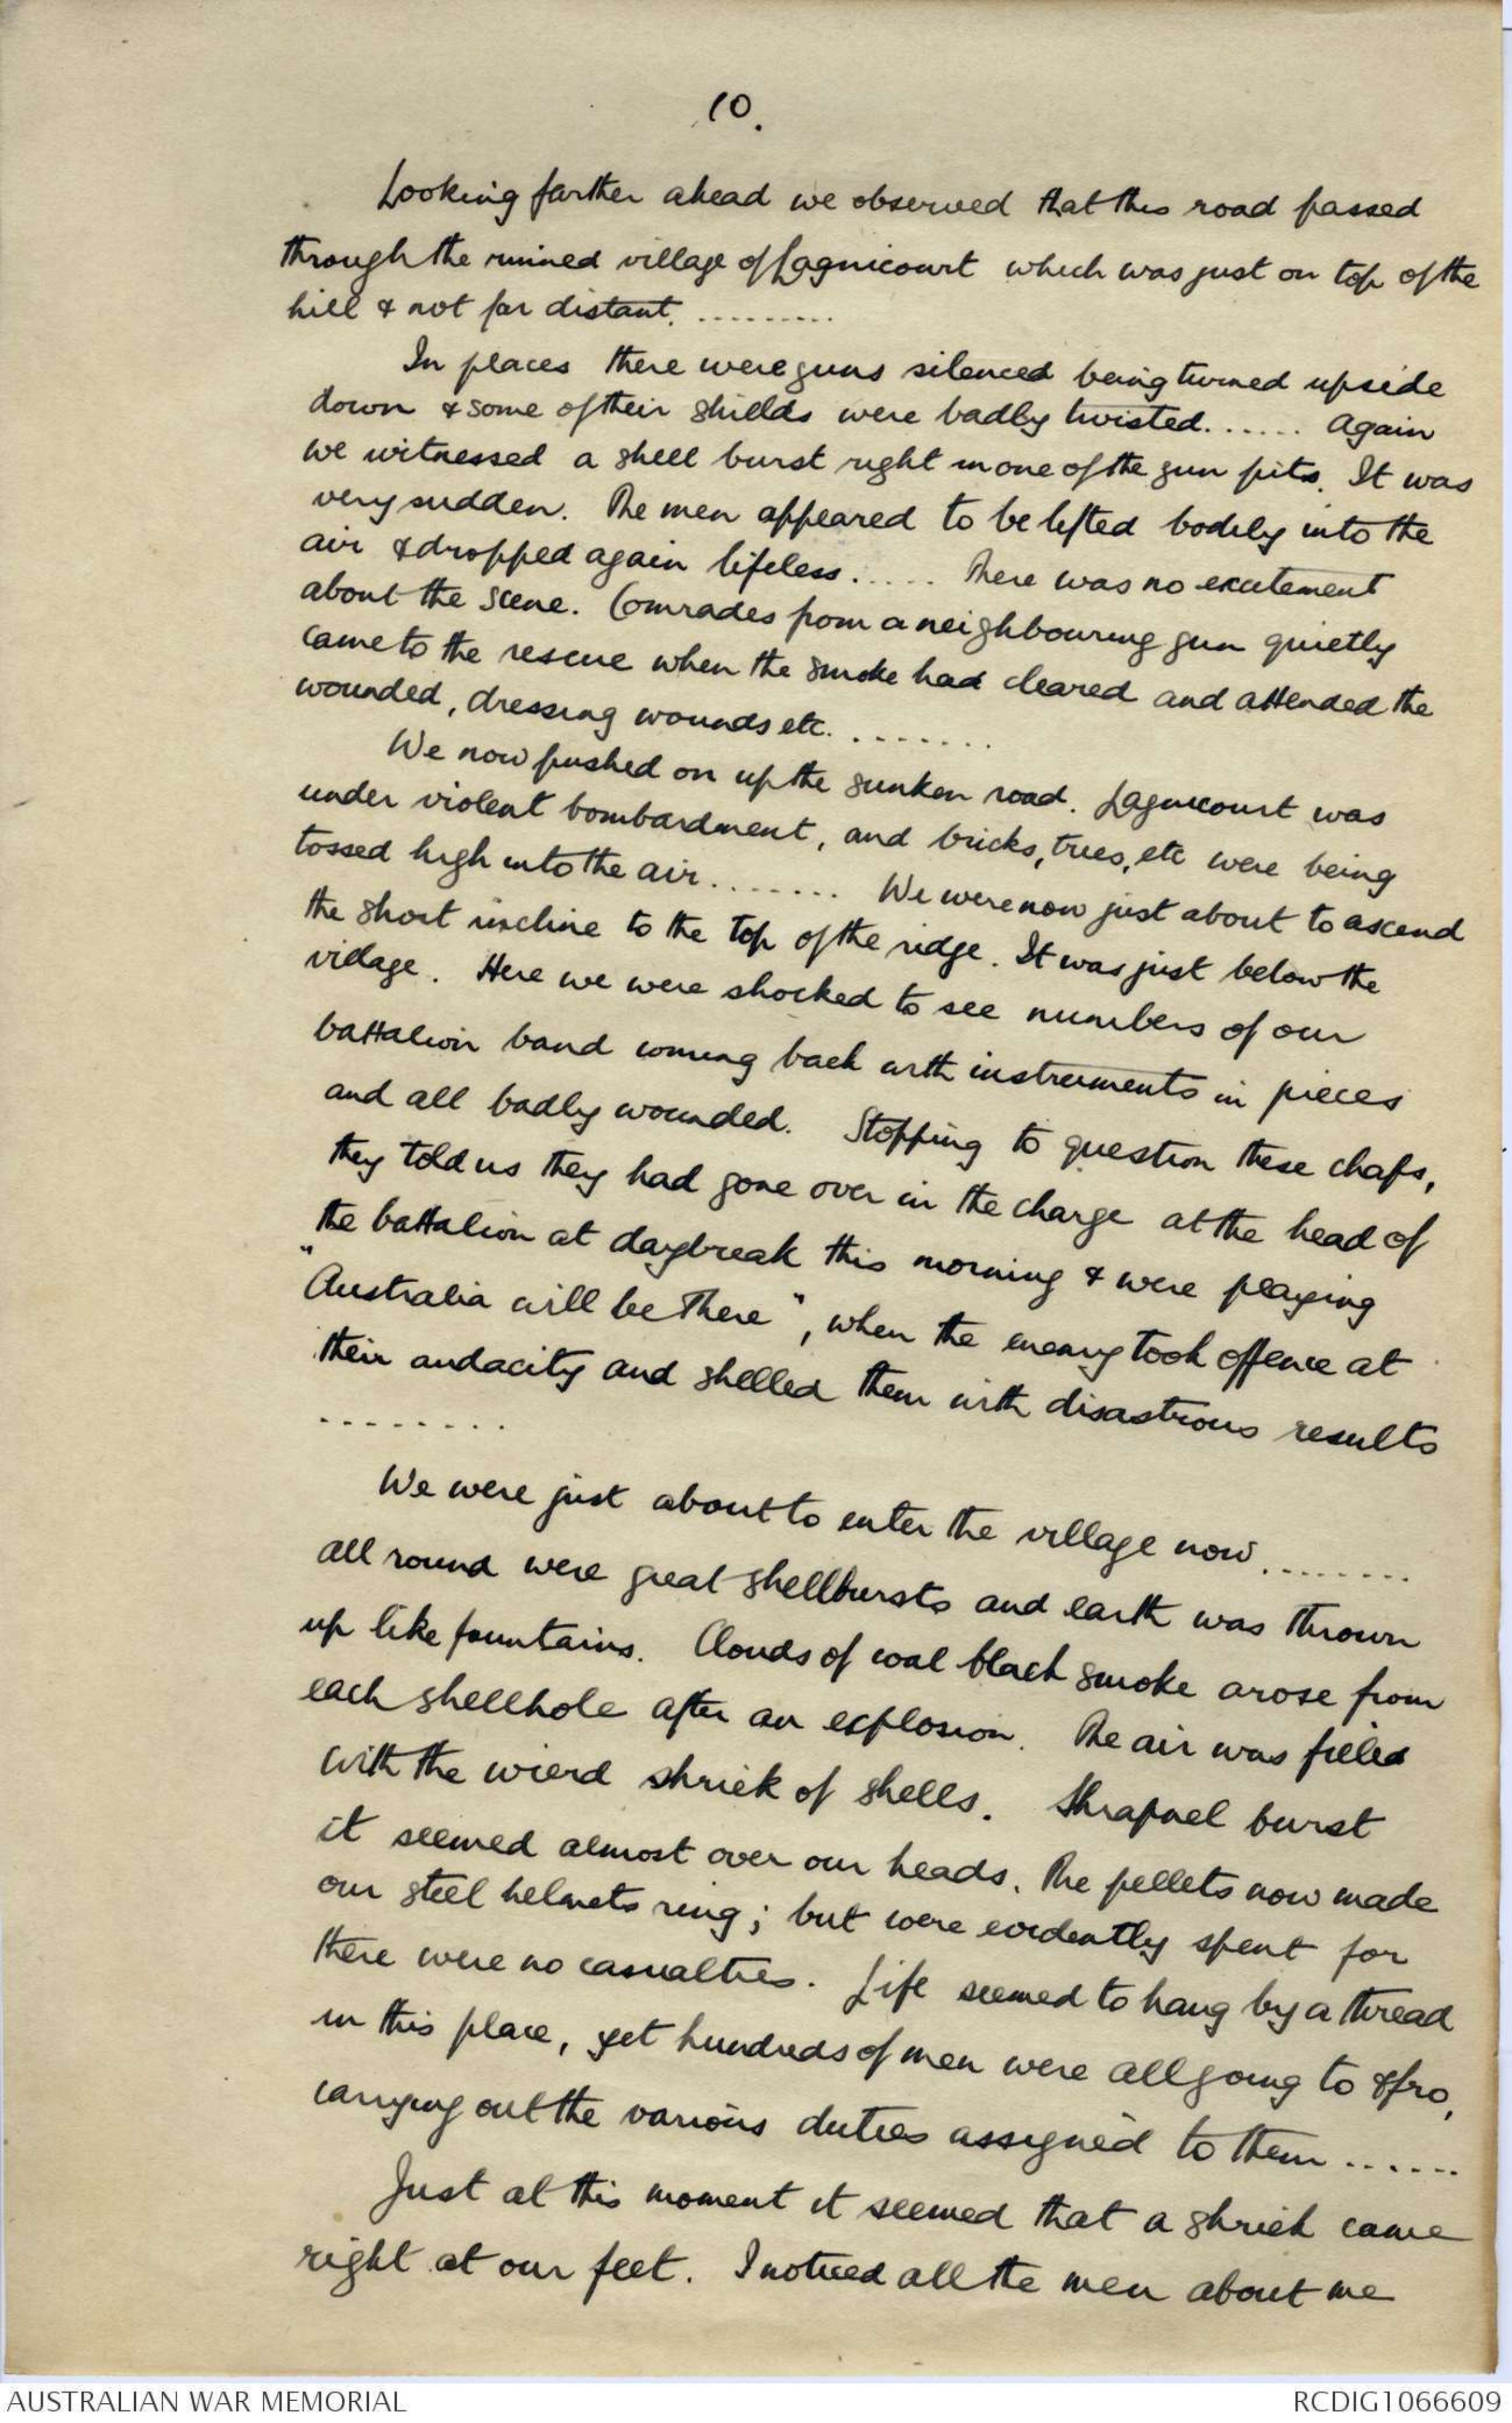 10.
Looking farther ahead we observed that this road passed
through the ruined village of Lagnicourt which was just on top of the
hill & not far distant. .........
In places there were guns silenced being turned upside
down & some of their shields were badly twisted. ..... Again
we witnessed a shell burst right in one of the gun pits. It was
very sudden. The men appeared to be lifted bodily into the
air & dropped again lifeless. ..... There was no excitement
about the scene. Comrades from a neighbouring gun quietly
came to the rescue when the smoke had cleared and attended the
wounded, dressing wounds etc. .......
We now pushed on up the sunken road. Lagnicourt was
under violent bombardment, and bricks, trees, etc were being
tossed high into the air ........ We were now just about to ascend
the short incline to the top of the ridge. It was just below the
village. Here we were shocked to see numbers of our
battalion band coming back with instruments in pieces
and all badly wounded. Stopping to question these chaps,
they told us they had gone over in the charge at the head of
the battalion at daybreak this morning & were playing
"Australia will be there", when the enemy took offence at
their audacity and shelled them with disastrous results
........
We were just about to enter the village now ........
all round were great shellbursts and earth was thrown
up like fountains. Clouds of coal black smoke arose from
each shellhole after an explosion. The air was filled
with the wierd shriek of shells. Shrapnel burst
it seemed almost over our heads. The pellets now made
our steel helmets ring; but were evidently spent for
there were no casualties. Life seemed to hang by a thread
in this place, yet hundreds of men were all going to & fro,
carrying out the various duties assigned to them ......
Just at this moment it seemed that a shriek came
right at our feet. I noticed all the men about me
AUSTRALIAN WAR MEMORIAL
RCDIG1066609